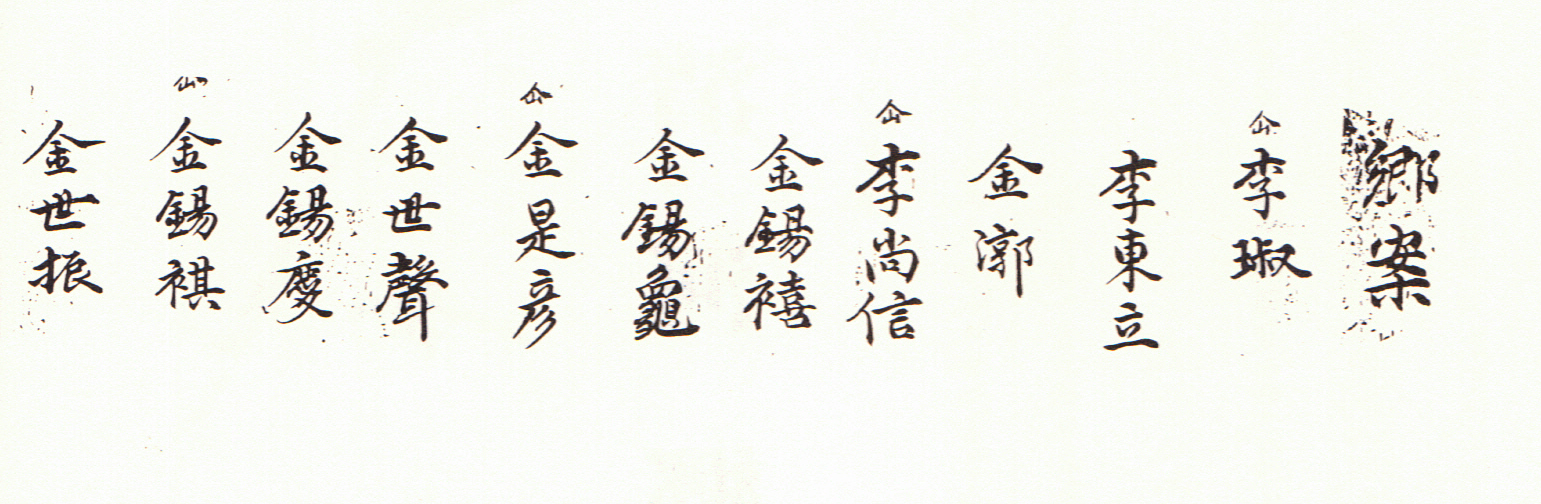 鄉案
仚 李琡
李東立
金漷
仚 李尚信
金錫禧
金錫龜
仚 金是彦
金世聲
金錫慶
仙 金錫祺
金世振